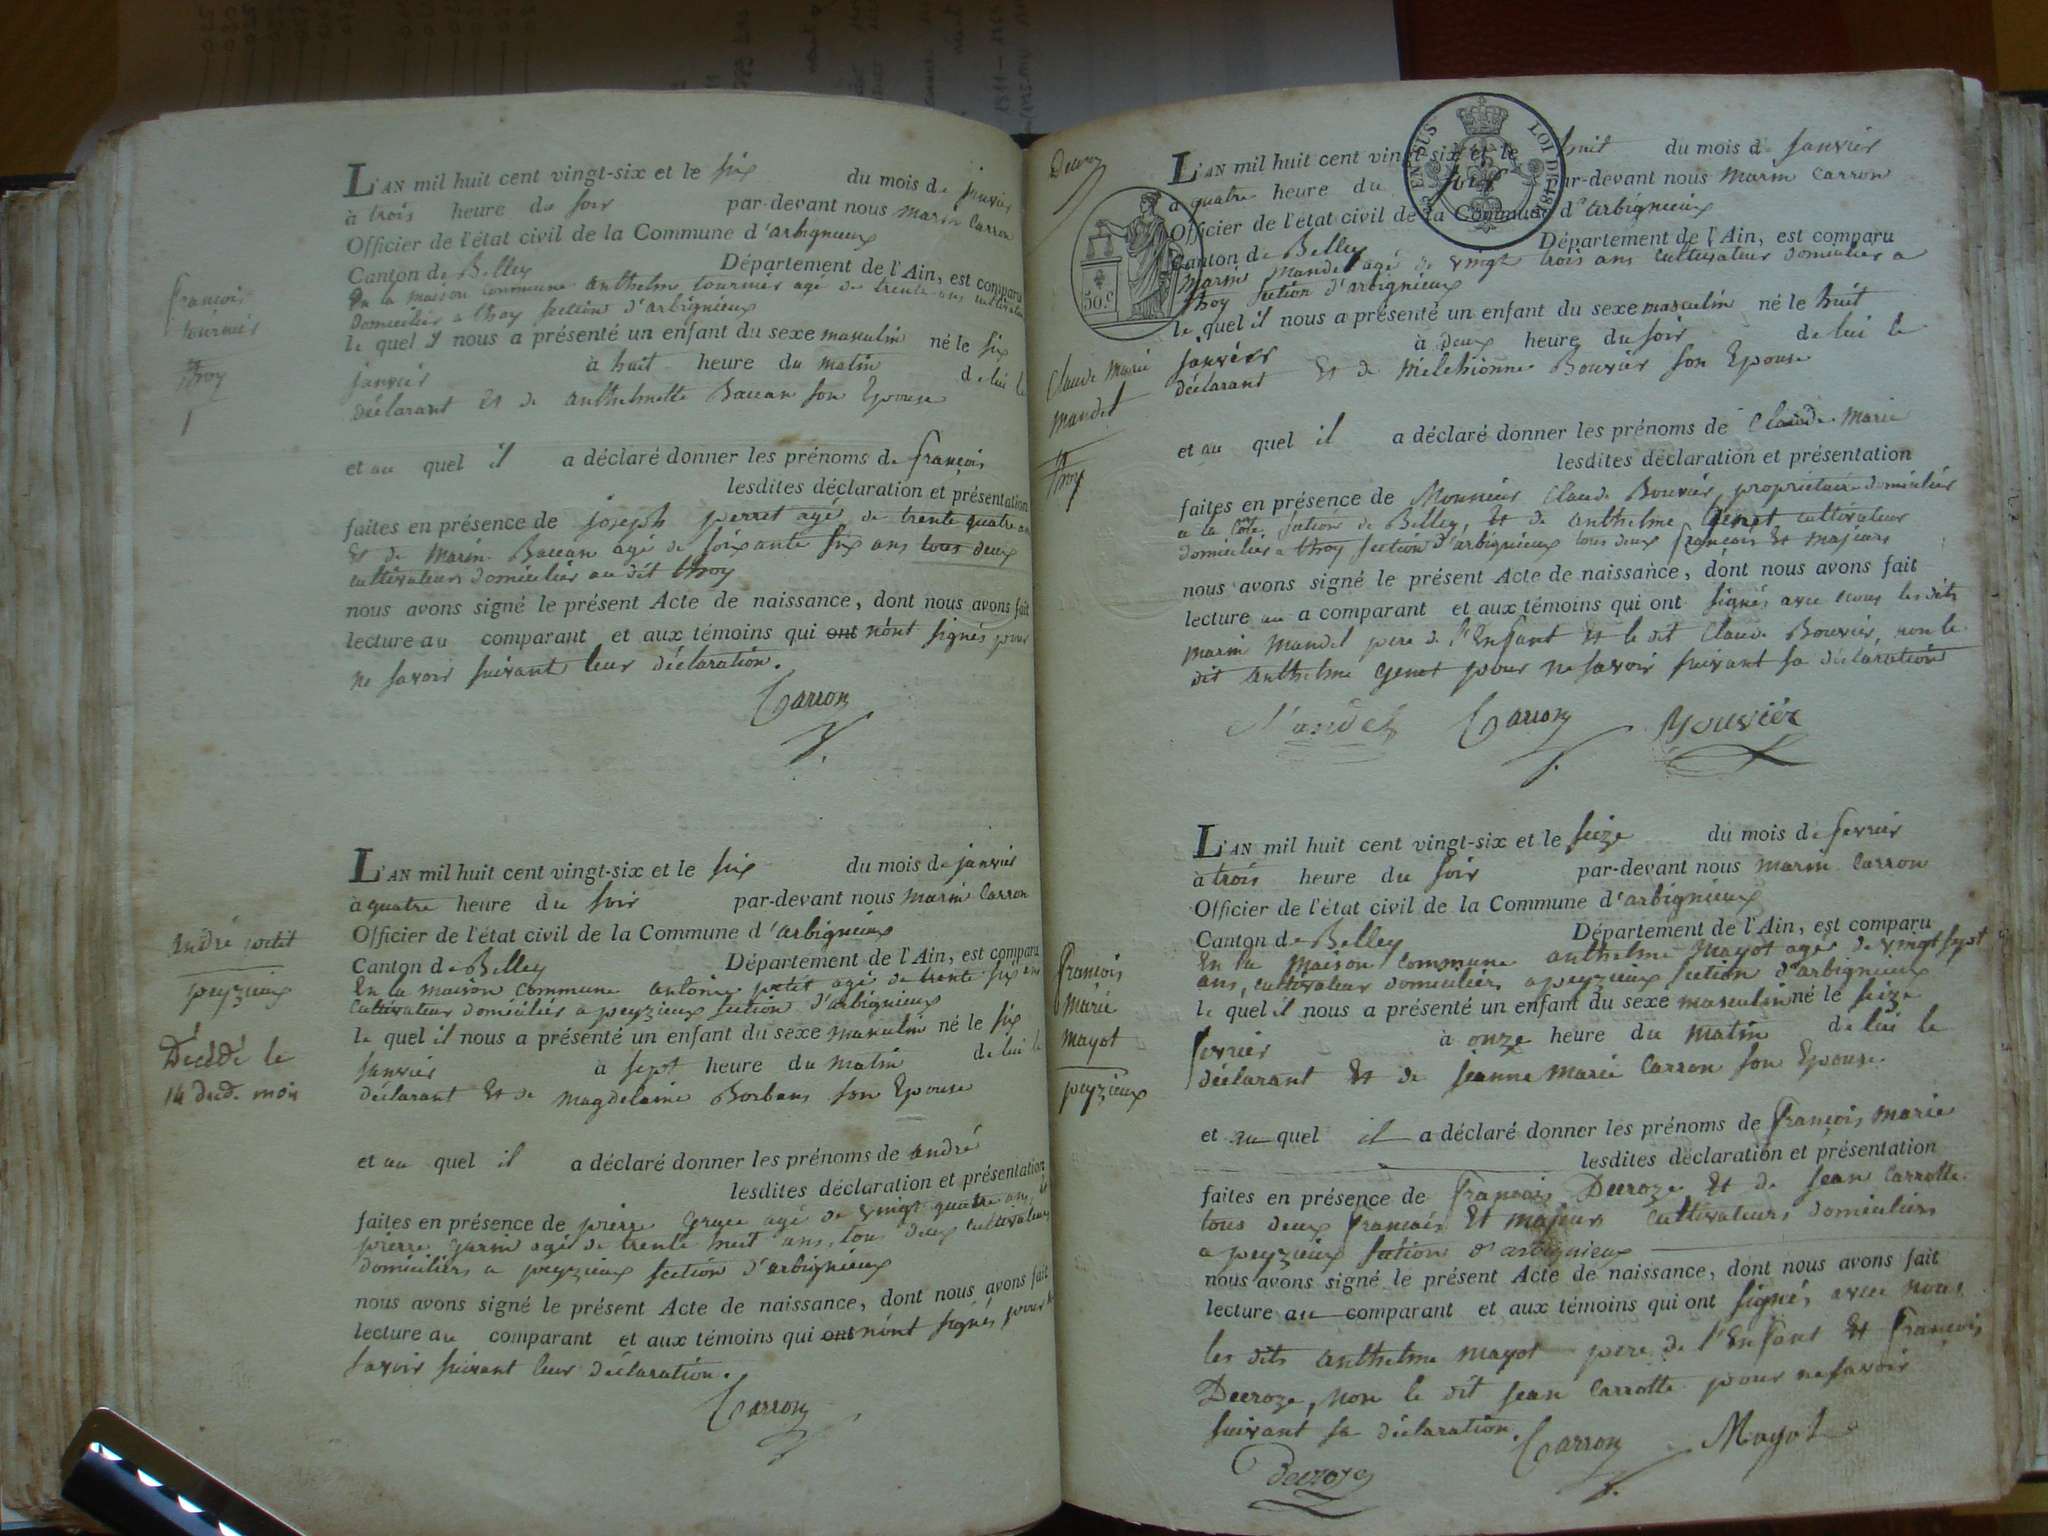 françois
tournier
Thoy
1
L'AN mil huit cent vingt-six et le six du mois de janvier
à trois heure du soir par-devant nous marin Carron
Officier de l'état civil de la Commune d'arbignieux
Canton de Belley Département de l'Ain, est comparu
En la maison Commune anthelme tournier agé de trente ans cultivateur
domicilié a thoy section d'arbignieux
le quel il nous a présenté un enfant du sexe masculin né le six
janvier à huit heure du matin de lui le
déclarant Et de anthelmette Baccan son Epouse
et au quel il a déclaré donner les prénoms de françois
lesdites déclaration et présentation
faites en présence de joseph perret agé de trente quatre ans
Et de Marin Baccan agé de soixante six ans tous deux
cultivateurs domiciliés au dit thoy
nous avons signé le présent Acte de naissance, dont nous avons fait
lecture au comparant et aux témoins qui ont n'ont signés pour
ne savoir suivant leur déclaration.
Carron
andré petit
peyzieux
Décédé le
14 dud. mois
L'AN mil huit cent vingt-six et le six du mois de janvier
à quatre heure du soir par-devant nous marin Carron
Officier de l'état civil de la Commune d'arbignieux
Canton de Belley Département de l'Ain, est comparu
En la maison commune antoine petit agé de trente six ans
cultivateur domicilié a peyzieux section d'arbignieux
le quel il nous a présenté un enfant du sexe masculin né le six
janvier à sept heure du matin de lui le
déclarant Et de magdelaine Borbans son Epouse
et au quel il a déclaré donner les prénoms de andré
lesdites déclaration et présentation
faites en présence de pierre agé de vingt quatre ans, et
pierre garin agé de trente huit ans, tous deux cultivateurs
domiciliés a peyzieux section d'arbignieux
nous avons signé le présent Acte de naissance, dont nous avons fait
lecture au comparant et aux témoins qui ont n'ont signés pour ne
savoir suivant leur déclaration.
Carron
50.c
EN SUS LOI DE 1816
Claude Marie
mandel
Thoy
L'AN mil huit cent vingt-six et le huit du mois de janvier
à quatre heure du soir par-devant nous marin Carron
Officier de l'état civil de la Commune d'arbignieux
Canton de Belley Département de l'Ain, est comparu
Marin Mandel agé de vingt trois ans cultivateur domicilié a
thoy section d'arbignieux
le quel il nous a présenté un enfant du sexe masculin né le huit
janvier à deux heure du soir de lui le
déclarant Et de Melchionne Bouvier son Epouse
et au quel il a déclaré donner les prénoms de Claude Marie
lesdites déclaration et présentation
faites en présence de Monsieur Claude Bouvier, propriétaire domicilié
a la Côte section de Belley, Et de anthelme Genet cultivateur
domicilié a thoy section d'arbignieux tous deux français Et majeurs
nous avons signé le présent Acte de naissance, dont nous avons fait
lecture au a comparant et aux témoins qui ont signés avec nous les dits
marin Mandel pere de l'Enfant Et le dit Claude Bouvier, non le
dit anthelme Genet pour ne savoir suivant sa déclaration
Mandel Carron Bouvier
françois
marie
mayot
peyzieux
L'AN mil huit cent vingt-six et le seize du mois de fevrier
à trois heure du soir par-devant nous marin Carron
Officier de l'état civil de la Commune d'arbignieux
Canton de Belley Département de l'Ain, est comparu
En la maison commune anthelme Mayot agés de vingt sept
ans, cultivateur domiciliés a peyzieux section d'arbignieux
le quel il nous a présenté un enfant du sexe masculin né le seize
fevrier à onze heure du matin de lui le
déclarant Et de jeanne marie Carron son Epouse
et au quel il a déclaré donner les prénoms de françois marie
lesdites déclaration et présentation
faites en présence de françois Decroze Et de jean Carrotte
tous deux français Et majeurs cultivateurs domiciliés
a peyzieux section d'arbignieux
nous avons signé le présent Acte de naissance, dont nous avons fait
lecture au comparant et aux témoins qui ont signés avec nous
les dits anthelme mayot pere de l'Enfant Et françois
Decroze, non le dit jean Carrotte pour ne savoir
suivant sa déclaration.
Carron Mayot
Decroze